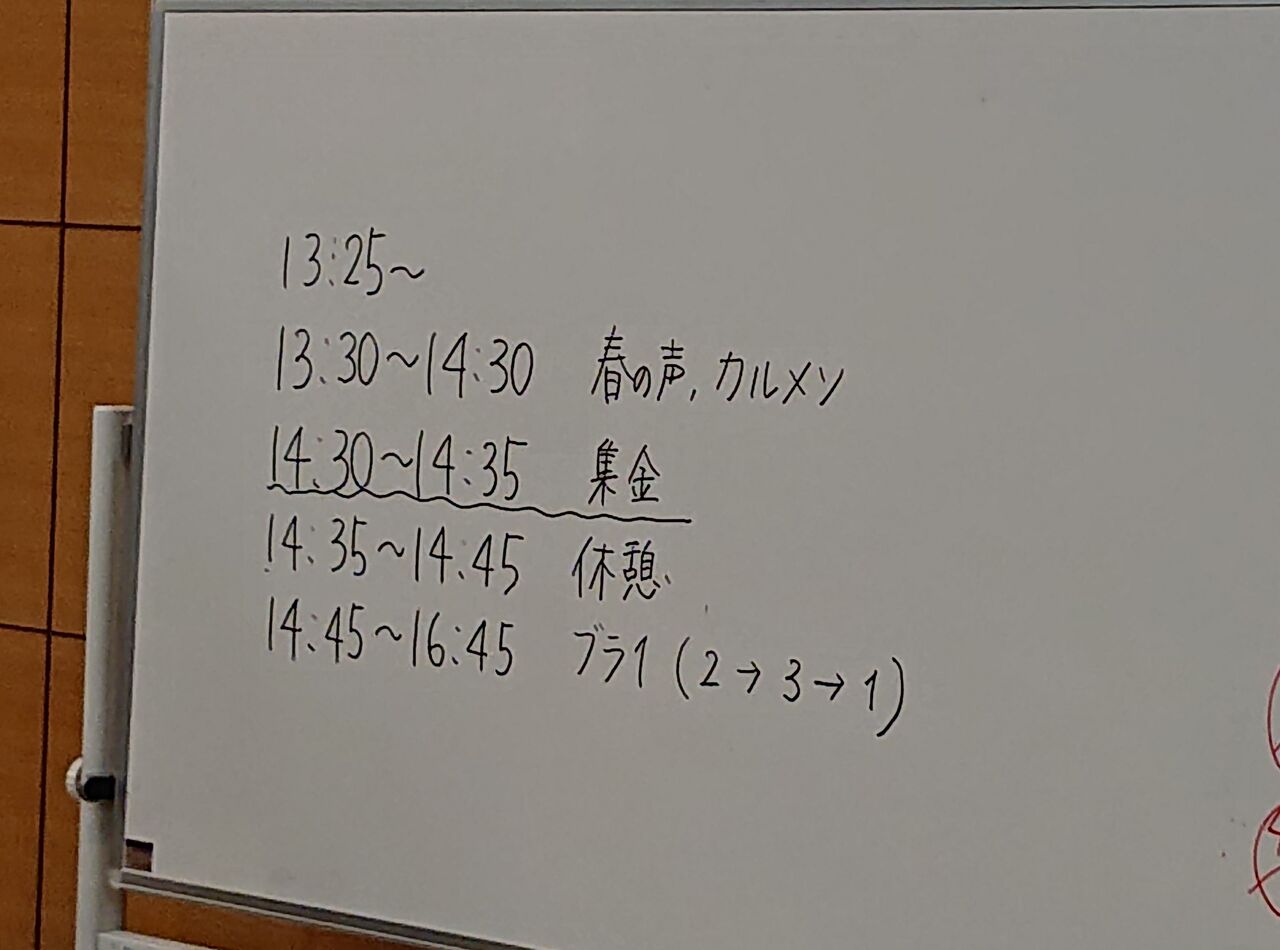 13:25～
13:30～14:30 春の声, カルメン
14:30～14:35 集金
14:35～14:45 休憩
14:45～16:45 ブラ1 (2→3→1)